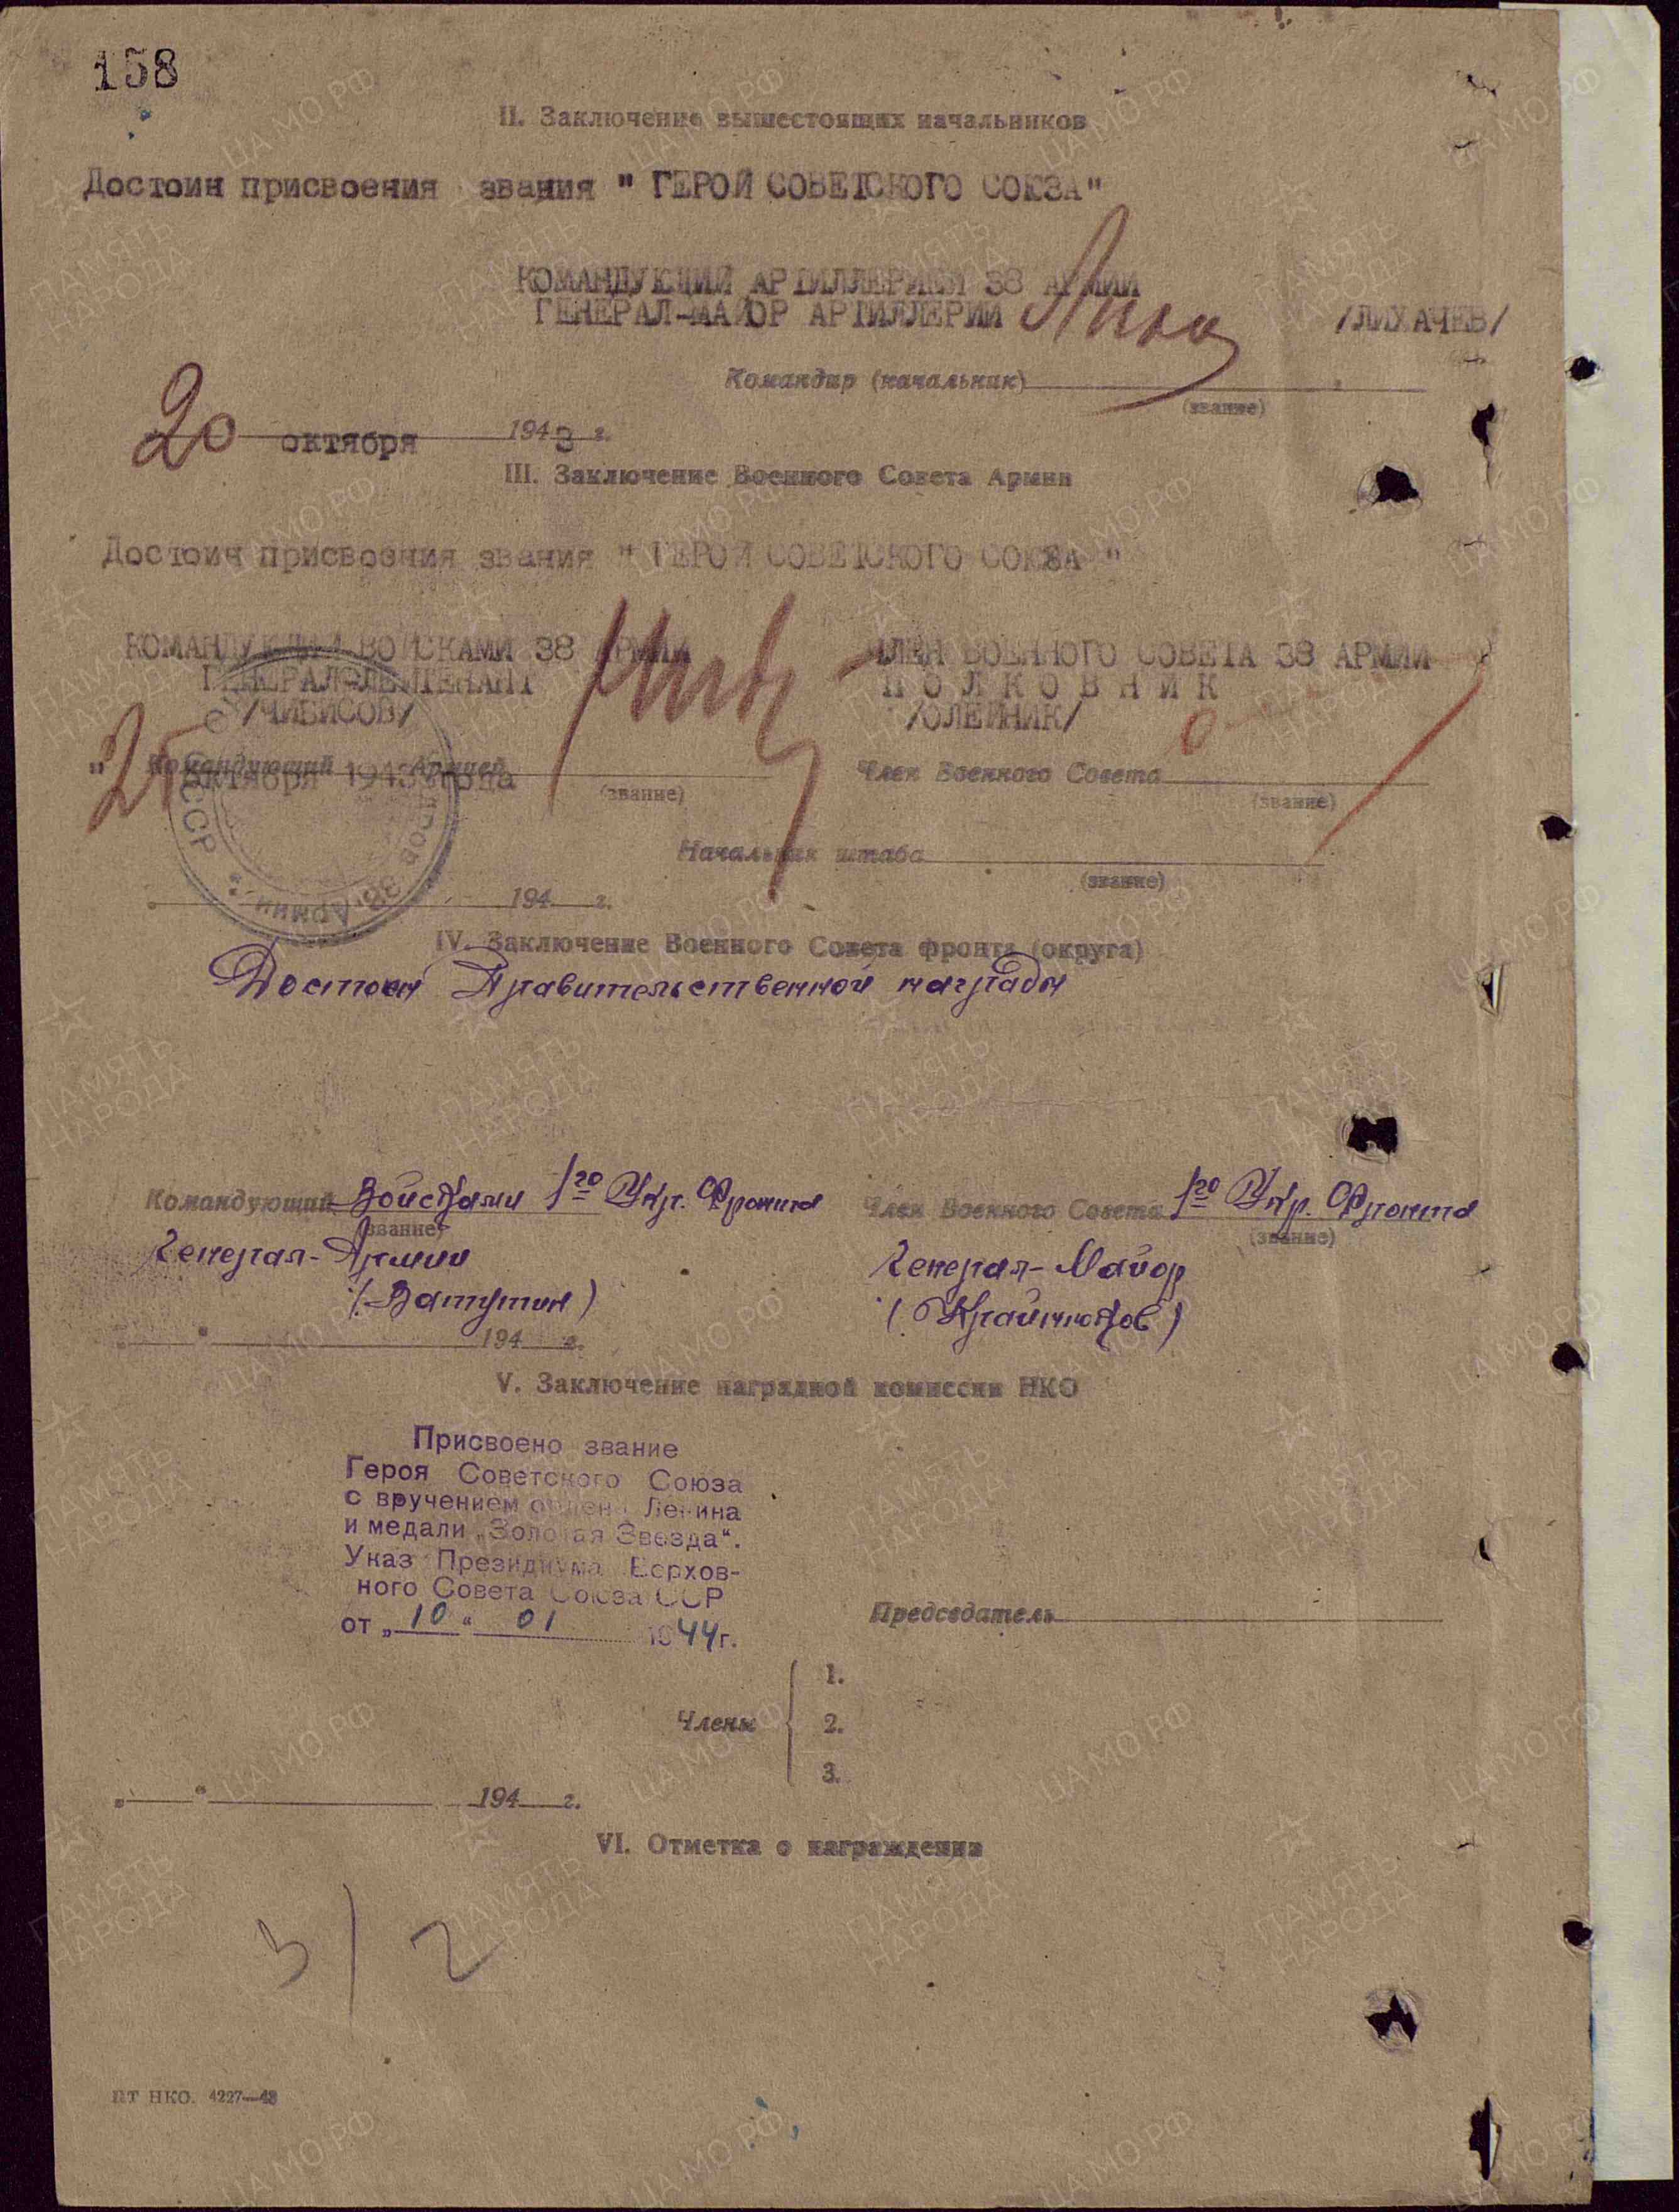 158
II. Заключение вышестоящих начальников
Достоин присвоения звания " ГЕРОЙ СОВЕТСКОГО СОЮЗА"
КОМАНДУЮЩИЙ АРТИЛЛЕРИЕЙ 38 АРМИИ
ГЕНЕРАЛ-МАЙОР АРТИЛЛЕРИИ /ЛИХАЧЕВ/
Командир (начальник)
(звание)
20 октября 1943 г.
III. Заключение Военного Совета Армии
Достоин присвоения звания " ГЕРОЙ СОВЕТСКОГО СОЮЗА "
КОМАНДУЮЩИЙ ВОЙСКАМИ 38 АРМИИ
ГЕНЕРАЛ-ЛЕЙТЕНАНТ
/ЧИБИСОВ/
ЧЛЕН ВОЕННОГО СОВЕТА 38 АРМИИ
ПОЛКОВНИК
/ОЛЕЙНИК/
Командующий Армией
(звание)
"25 октября 1943 года
Член Военного Совета
(звание)
Начальник штаба
(звание)
194 г.
IV. Заключение Военного Совета фронта (округа)
Достоен Правительственной награды
Командующий Войсками 1го Укр. Фронта
(звание)
Генерал-Армии
(Ватутин)
Член Военного Совета 1го Укр. Фронта
(звание)
Генерал-Майор
(Крайнюков)
" " 194 г.
V. Заключение наградной комиссии НКО
Присвоено звание
Героя Советского Союза
с вручением ордена Ленина
и медали „Золотая Звезда".
Указ Президиума Верхов-
ного Совета Союза ССР
от „10" 01 1944г.
Председатель
Члены
1.
2.
3.
„ " 194 г.
VI. Отметка о награждении
3/2
ПТ НКО. 4227—43